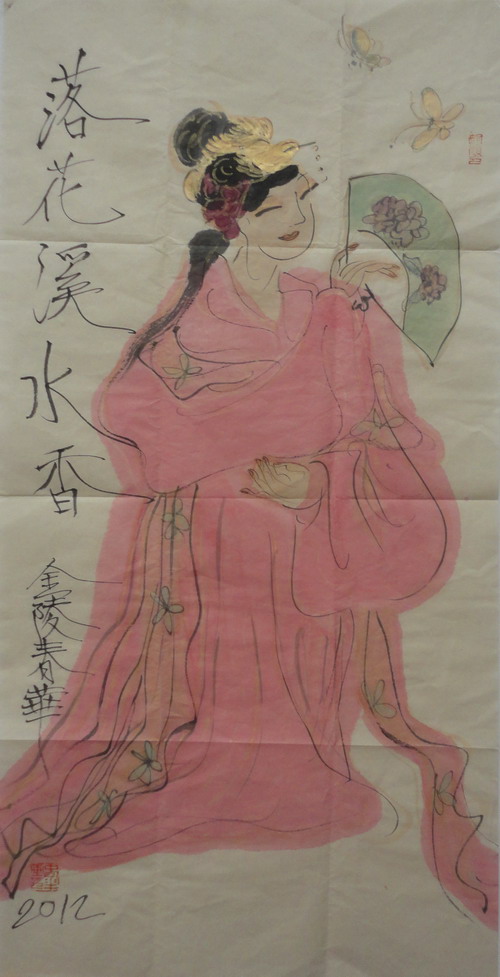 落花溪水香
金陵春華
2012